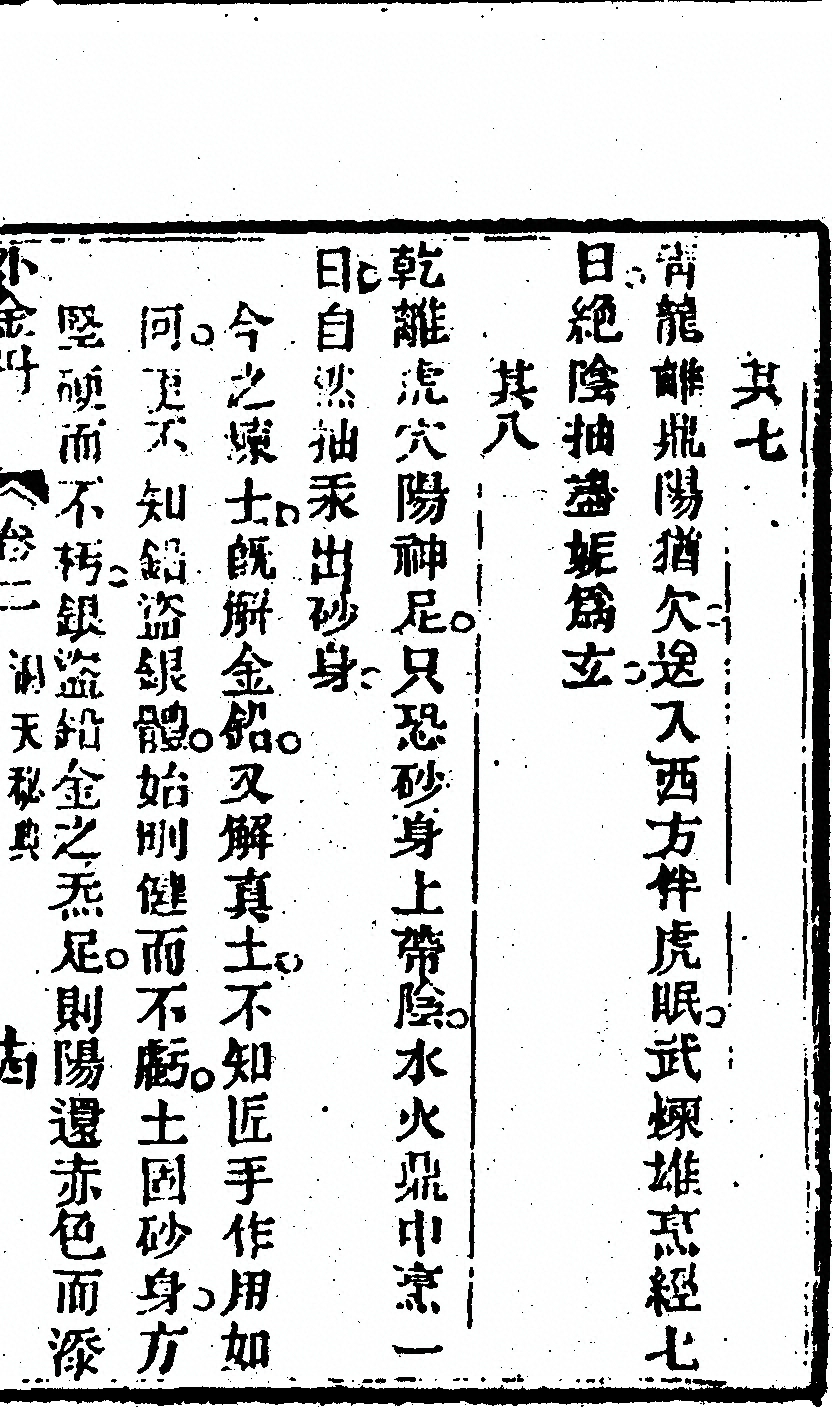 其七
青龍離鼎陽猶欠送入西方伴虎眠武煉雄烹經七
日絶陰抽盡妮爲玄
其八
乾離虎穴陽神足只恐砂身上帶陰水火鼎中烹一
日自然抽汞出砂身
今之煉士既觧金鉛又解真土不知匠手作用如
何更不知鉛盜銀體始剛健而不虧土固砂身方
堅硬而不朽銀盜鉛金之炁足則陽還赤色而添
外金丹 卷二 洞天秘典 十四